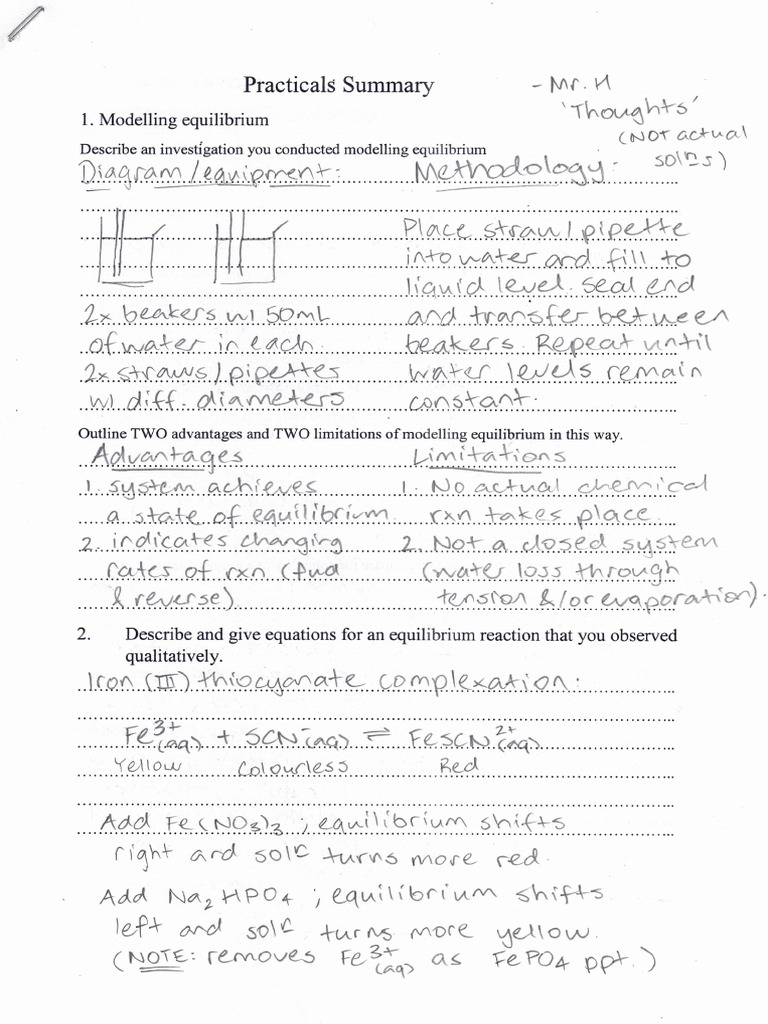 Practicals Summary
- Mr. H
'Thoughts'
(NOT actual
solns)
1. Modelling equilibrium
Describe an investigation you conducted modelling equilibrium
Diagram/equipment:
2x beakers w/ 50mL
of water in each.
2x straws/pipettes
w/ diff. diameters
Methodology:
Place straw/pipette
into water and fill to
liquid level. Seal end
and transfer between
beakers. Repeat until
water levels remain
constant.
Outline TWO advantages and TWO limitations of modelling equilibrium in this way.
Advantages
1. system achieves
a state of equilibrium.
2. indicates changing
rates of rxn (fwd
& reverse)
Limitations
1. No actual chemical
rxn takes place.
2. Not a closed system
(water loss through
tension &/or evaporation).
2. Describe and give equations for an equilibrium reaction that you observed
qualitatively.
Iron (III) thiocyanate complexation:
Fe³⁺(aq) + SCN⁻(aq) ⇌ FeSCN²⁺(aq)
Yellow Colourless Red
Add Fe(NO₃)₃; equilibrium shifts
right and soln turns more red.
Add Na₂HPO₄; equilibrium shifts
left and soln turns more yellow.
(NOTE: removes Fe³⁺(aq) as FePO₄ ppt.)